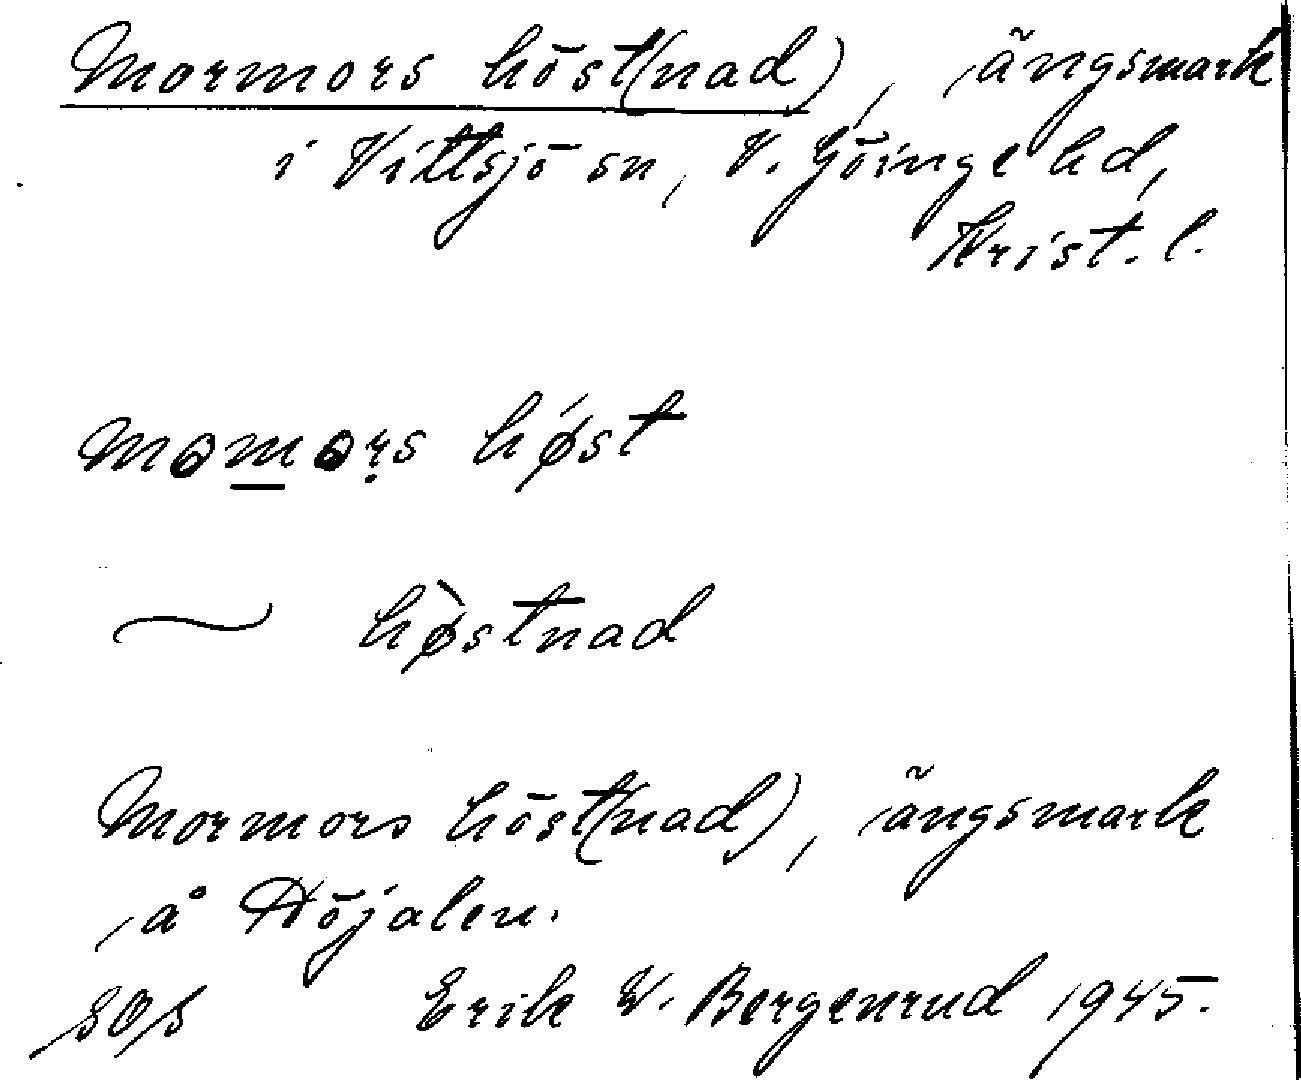 Mormors höst(nad), ängsmark
i Vittsjö sn, V. Göinge hd,
Krist. l.
momoṛs høst
~ høstnad
Mormors höst(nad), ängsmark
å Höjalen.
sos Erik W. Bergenrud 1945.